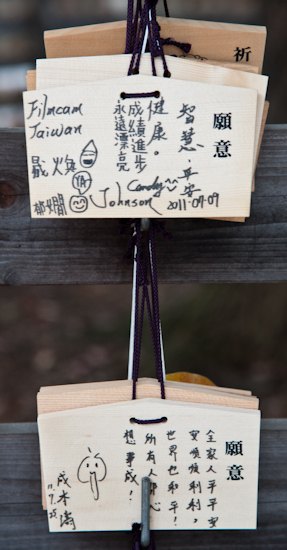 祈
願意
智慧·平安
健康。
成績進步
永遠漂亮
Filmcam
Taiwan
Candy
Johnson
2011-09-09
願意
全家人平平安
安順順利利。
世界也和平!
所有人都心
想事成!
成木濤
11.7.25